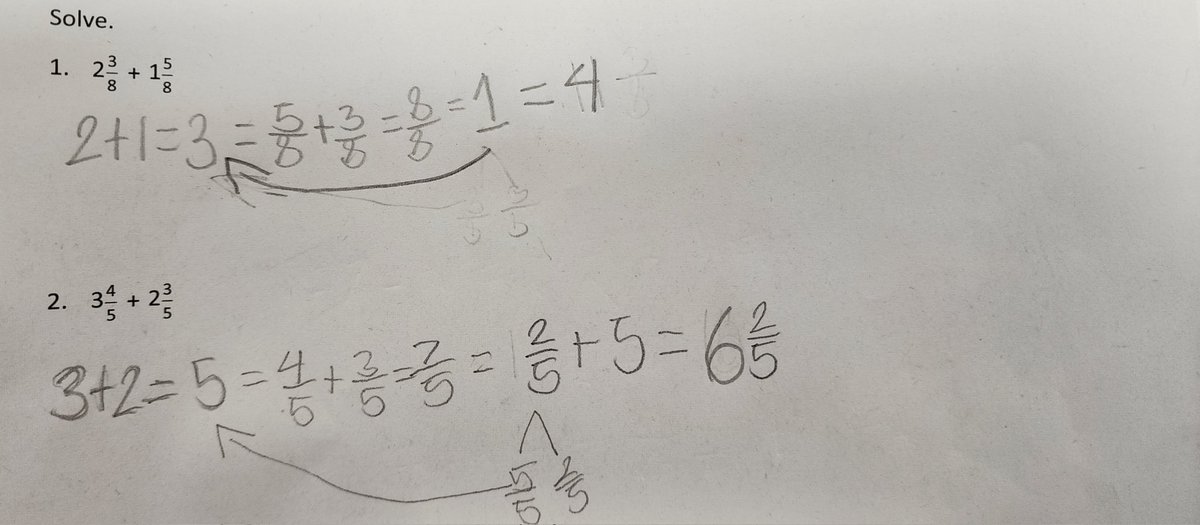 Solve.
1. 2 3/8 + 1 5/8
2+1=3=5/8+3/8=8/8=1=4
3/5
2. 3 4/5 + 2 3/5
3+2=5=4/5+3/5=7/5=1 2/5+5=6 2/5
5/5 2/5